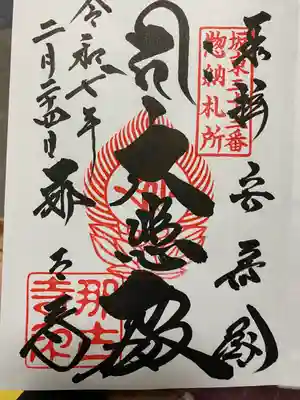 奉拝 安房国
坂東三十三番
惣納札所
大悲殿
令和七年
二月廿四日
那古寺
那古
寺印